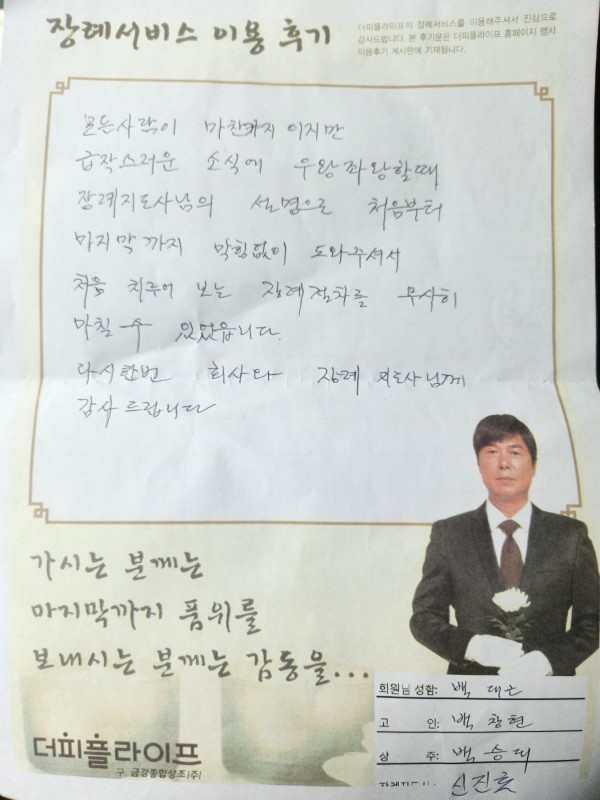 장례서비스 이용 후기
더피플라이프의 장례서비스를 이용해주셔서 진심으로
감사드립니다. 본 후기문은 더피플라이프 홈페이지 행사
이용후기 게시판에 기재됩니다.
모든사람이 마찬가지 이지만
급작스러운 소식에 우왕좌왕할때
장례지도사님의 설명으로 처음부터
마지막까지 막힘없이 도와주셔서
처음 치루어 보는 장례절차를 무사히
마칠 수 있었읍니다.
다시한번 회사와 장례 지도사님께
감사 드립니다
가시는 분께는
마지막까지 품위를
보내시는 분께는 감동을...
회원님 성함: 백 대근
고 인: 백 창현
상 주: 백 승대
장례지도사: 신진호
더피플라이프
구. 금강종합상조(주)